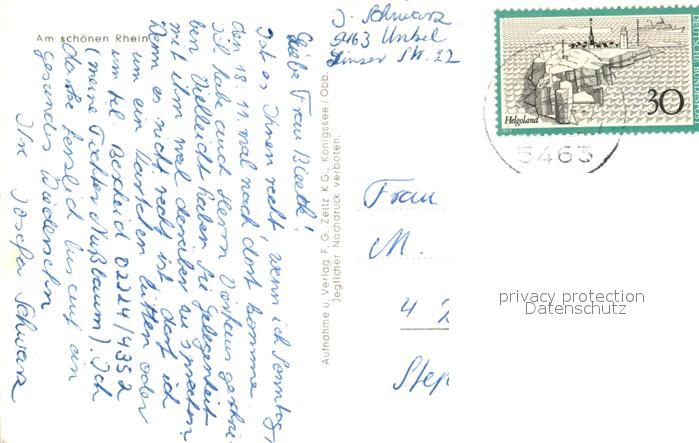 Am schönen Rhein
Liebe Frau Bieeth!
Ist es Ihnen recht, wenn ich Sonntag,
den 18. 11 mal nach dort komme.
Ich habe auch Herrn geschrie-
ben. Vielleicht haben Sie Gelegenheit
mit ihm mal darüber zu sprechen.
Wenn es nicht recht ist, darf ich
um ein Kärtchen bitten oder
um tel. Bescheid 02224/4352
(meine Tochter Nußbaum). Ich
danke herzlich bis auf ein
gesundes Wiedersehn
Ihre Josefa Schwarz
Aufnahme u. Verlag F. G. Zeitz K G., Königssee / Obb.
Jeglicher Nachdruck verboten.
J. Schwarz
5463 Unkel
Linzer Str. 22
DEUTSCHE BUNDESPOST
30
Helgoland
5463
Frau
M.
4
privacy protection
Datenschutz